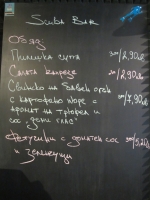 Scuba Bar
Обяд
Пилешка супа 300/2,90лв
Салата капрезе 250/2,90лв
Свинско на бавен огън
с картофено пюре с 350/7,90лв
аромат на трюфел и
сос „деми глас“
Фетучини с доматен сос 300/5,20лв
и зеленчуци